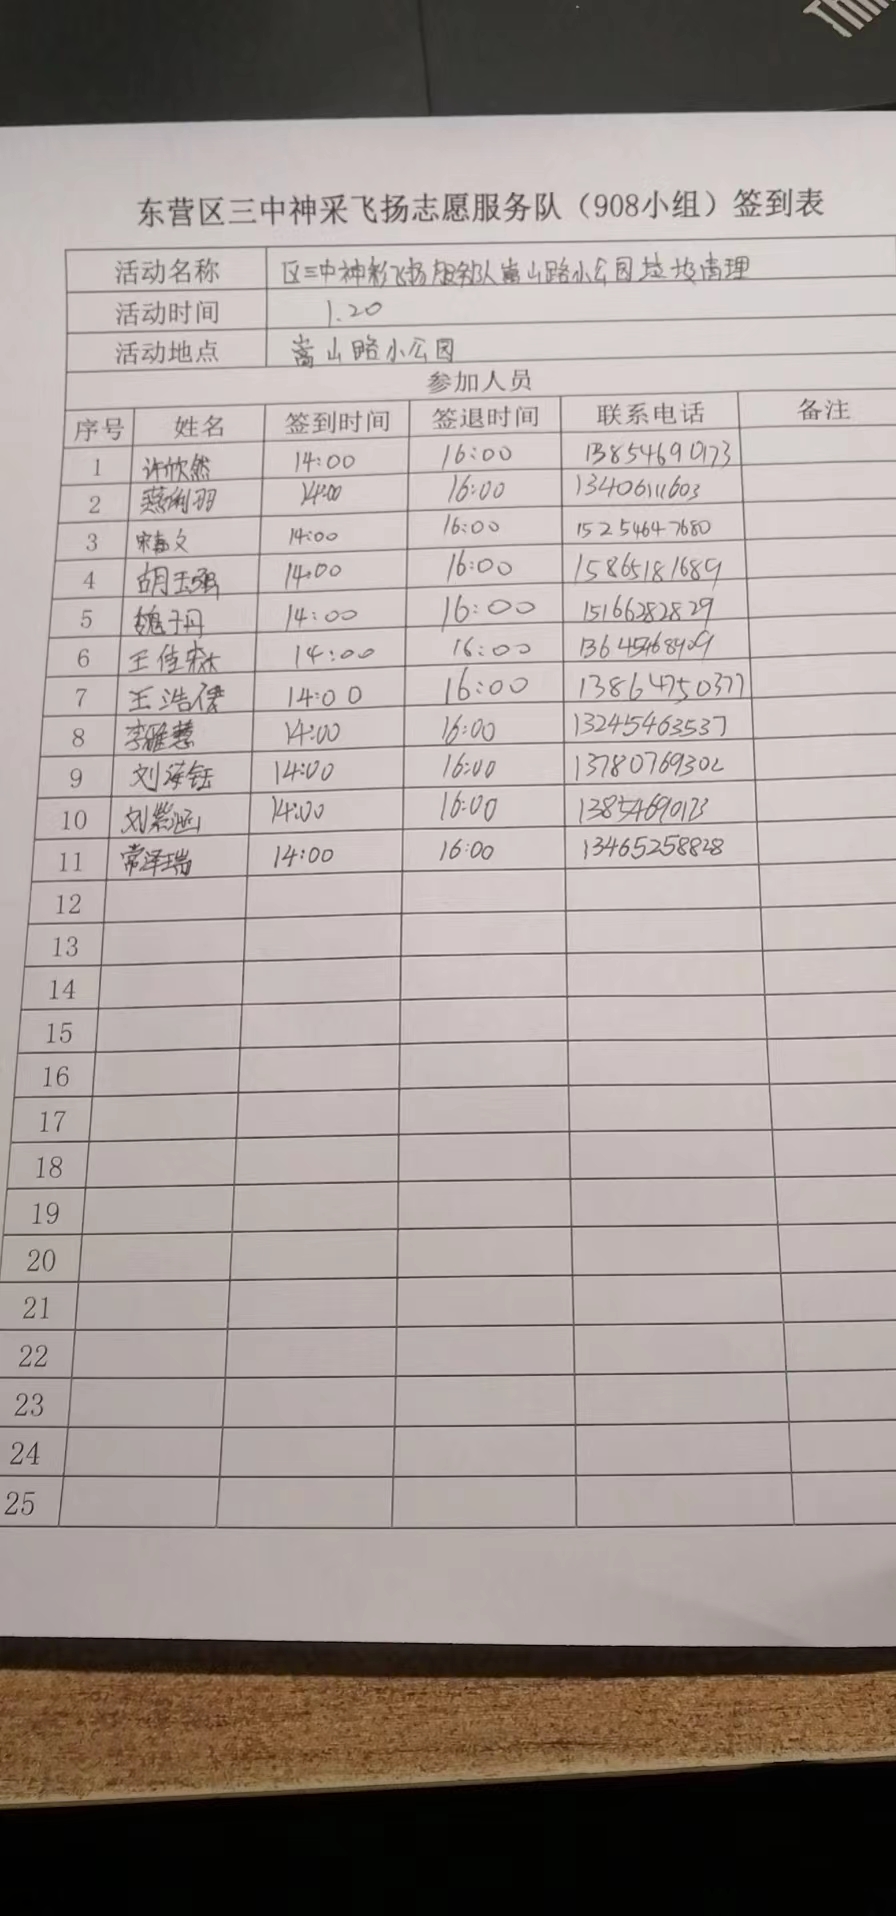 东营区三中神采飞扬志愿服务队（908小组）签到表
活动名称 区三中神彩飞扬服务队嵩山路小公园垃圾清理
活动时间 1.20
活动地点 嵩山路小公园
参加人员
序号 姓名 签到时间 签退时间 联系电话 备注
1 许欣然 14:00 16:00 13854690173
2 14:00 16:00 13406111603
3 14:00 16:00 15254647680
4 胡玉强 14:00 16:00 15865181689
5 魏子丹 14:00 16:00 15166282829
6 14:00 16:00
7 14:00 16:00 13864750377
8 李雅慧 14:00 16:00 13245463537
9 刘海钰 14:00 16:00 13780769302
10 刘紫涵 14:00 16:00 13854690173
11 常泽瑞 14:00 16:00 13465258828
12
13
14
15
16
17
18
19
20
21
22
23
24
25